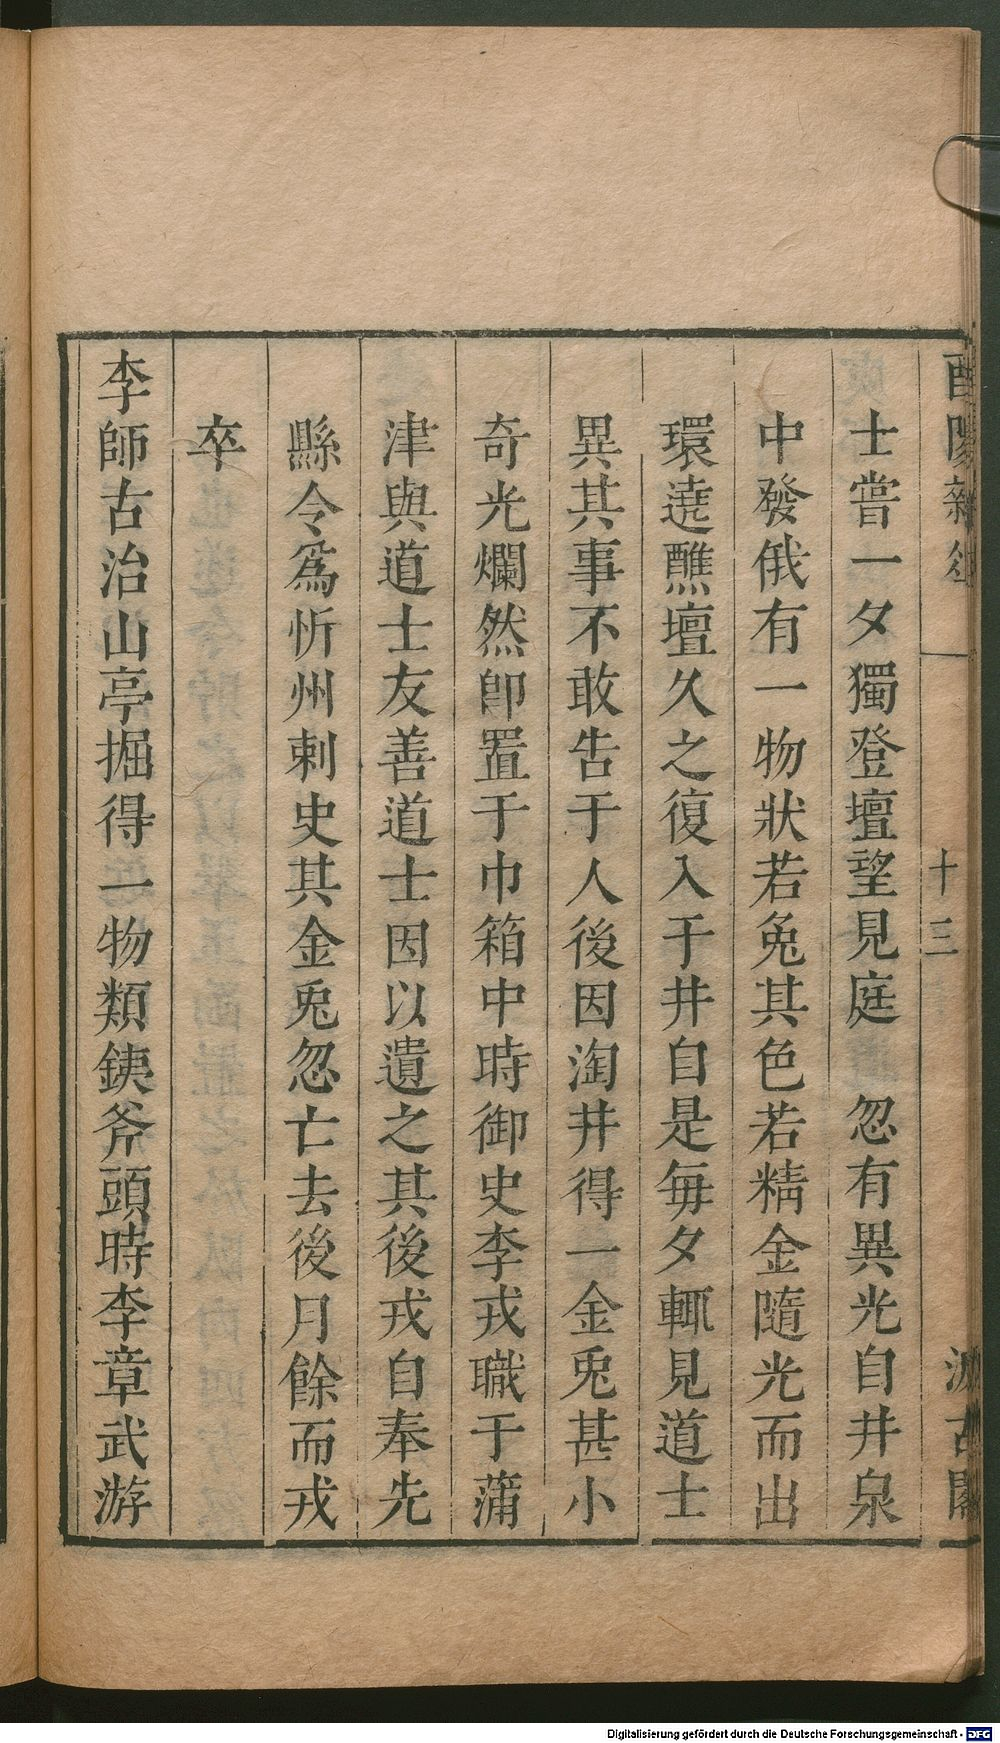 酉陽雜俎
十三
汲古閣
士嘗一夕獨登壇望見庭　忽有異光自井泉
中發俄有一物狀若兔其色若精金隨光而出
環遶醮壇久之復入于井自是每夕輒見道士
異其事不敢告于人後因淘井得一金兎甚小
奇光爛然卽置于巾箱中時御史李戎職于蒲
津與道士友善道士因以遺之其後戎自奉先
縣令爲忻州刺史其金兎忽亡去後月餘而戎
卒
李師古治山亭掘得一物類鐵斧頭時李章武游
Digitalisierung gefördert durch die Deutsche Forschungsgemeinschaft - DFG